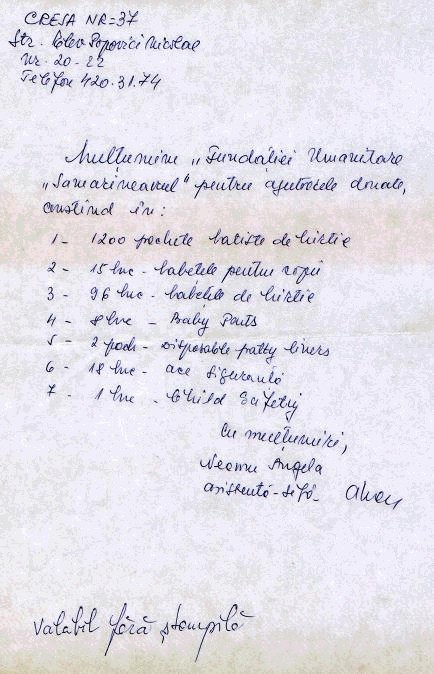 CRESA NR=37
Str. Elev Popovici Nicolae
Nr. 20-22
Telefon 420.31.74
Mulțumim „Fundației Umanitare
„Samarineanul" pentru ajutoarele donate,
constînd în:
1 - 1200 pachete batiste de hîrtie
2 - 15 buc - babetele pentru copii
3 - 96 buc - babetele de hîrtie
4 - 8 buc - Baby Pants
5 - 2 pach - Disposable patty liners
6 - 18 buc - ace siguranță
7 - 1 buc - Child Safety
Cu mulțumiri,
Neamu Angela
asistentă-șefă
Valabil fără ștampilă